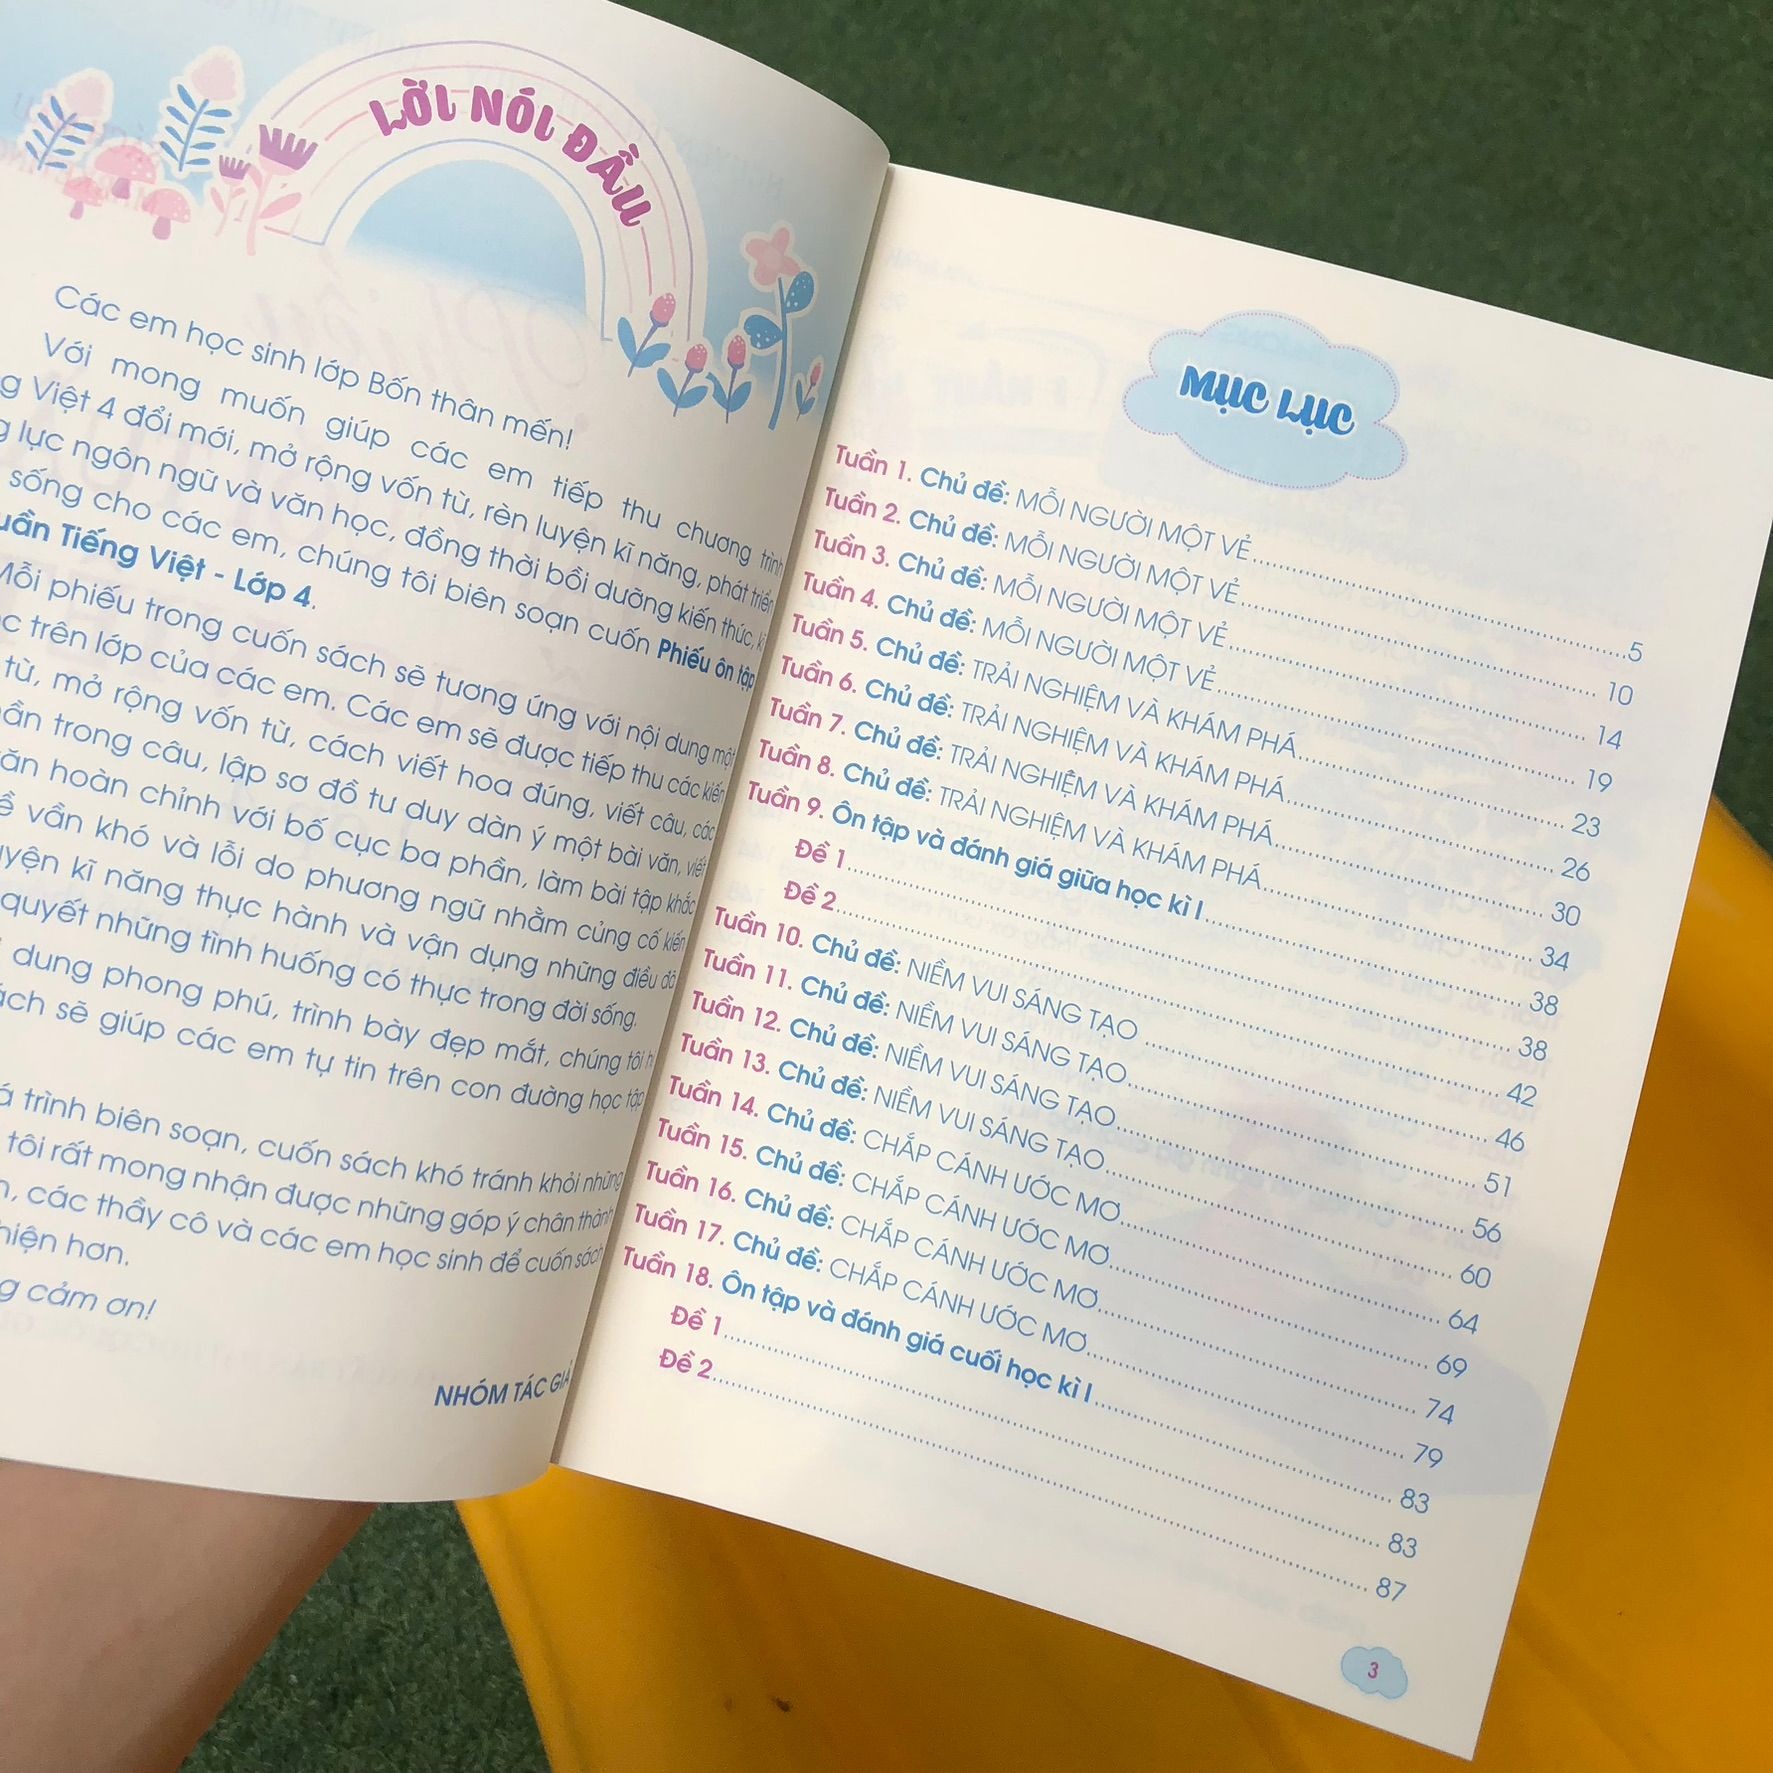 LỜI NÓI ĐẦU
Các em học sinh lớp Bốn thân mến!
Với mong muốn giúp các em tiếp thu chương trình
Việt 4 đổi mới, mở rộng vốn từ, rèn luyện kĩ năng, phát triển
lực ngôn ngữ và văn học, đồng thời bồi dưỡng kiến thức,
sống cho các em, chúng tôi biên soạn cuốn Phiếu ôn tập
Tiếng Việt - Lớp 4.
Mỗi phiếu trong cuốn sách sẽ tương ứng với nội dung một
trên lớp của các em. Các em sẽ được tiếp thu các kiến
từ, mở rộng vốn từ, cách viết hoa đúng, viết câu, các
trong câu, lập sơ đồ tư duy dàn ý một bài văn, viết
hoàn chỉnh với bố cục ba phần, làm bài tập khắc
vần khó và lỗi do phương ngữ nhằm củng cố kiến
kĩ năng thực hành và vận dụng những điều đó
quyết những tình huống có thực trong đời sống.
dung phong phú, trình bày đẹp mắt, chúng tôi
sẽ giúp các em tự tin trên con đường học tập
trình biên soạn, cuốn sách khó tránh khỏi những
tôi rất mong nhận được những góp ý chân thành
các thầy cô và các em học sinh để cuốn sách
hơn.
cảm ơn!
NHÓM TÁC GIẢ
MỤC LỤC
Tuần 1. Chủ đề: MỖI NGƯỜI MỘT VẺ.....5
Tuần 2. Chủ đề: MỖI NGƯỜI MỘT VẺ.....10
Tuần 3. Chủ đề: MỖI NGƯỜI MỘT VẺ.....14
Tuần 4. Chủ đề: MỖI NGƯỜI MỘT VẺ.....19
Tuần 5. Chủ đề: TRẢI NGHIỆM VÀ KHÁM PHÁ.....23
Tuần 6. Chủ đề: TRẢI NGHIỆM VÀ KHÁM PHÁ.....26
Tuần 7. Chủ đề: TRẢI NGHIỆM VÀ KHÁM PHÁ.....30
Tuần 8. Chủ đề: TRẢI NGHIỆM VÀ KHÁM PHÁ.....34
Tuần 9. Ôn tập và đánh giá giữa học kì I.....38
Đề 1.....38
Đề 2.....42
Tuần 10. Chủ đề: NIỀM VUI SÁNG TẠO.....46
Tuần 11. Chủ đề: NIỀM VUI SÁNG TẠO.....51
Tuần 12. Chủ đề: NIỀM VUI SÁNG TẠO.....56
Tuần 13. Chủ đề: NIỀM VUI SÁNG TẠO.....60
Tuần 14. Chủ đề: CHẮP CÁNH ƯỚC MƠ.....64
Tuần 15. Chủ đề: CHẮP CÁNH ƯỚC MƠ.....69
Tuần 16. Chủ đề: CHẮP CÁNH ƯỚC MƠ.....74
Tuần 17. Chủ đề: CHẮP CÁNH ƯỚC MƠ.....79
Tuần 18. Ôn tập và đánh giá cuối học kì I.....83
Đề 1.....83
Đề 2.....87
3